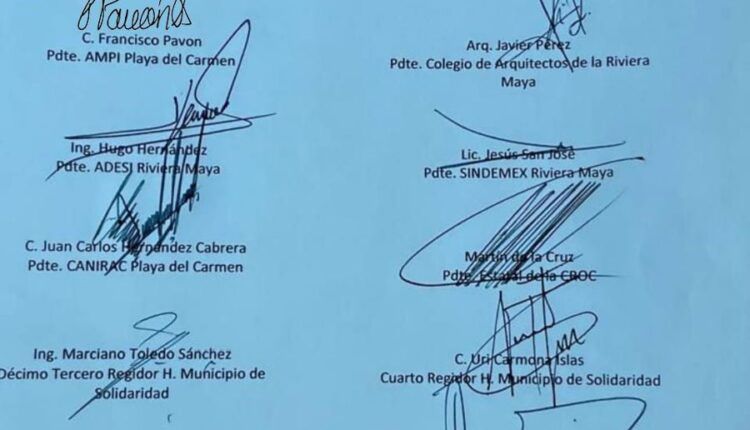 Pavon
C. Francisco Pavon
Pdte. AMPI Playa del Carmen
Arq. Javier Pérez
Pdte. Colegio de Arquitectos de la Riviera
Maya
Ing. Hugo Hernández
Pdte. ADESI Riviera Maya
Lic. Jesús San José
Pdte. SINDEMEX Riviera Maya
C. Juan Carlos Hernández Cabrera
Pdte. CANIRAC Playa del Carmen
Martín de la Cruz
Pdte. Estatal de la CROC
Ing. Marciano Toledo Sánchez
Décimo Tercero Regidor H. Municipio de
Solidaridad
C. Uri Carmona Islas
Cuarto Regidor H. Municipio de Solidaridad